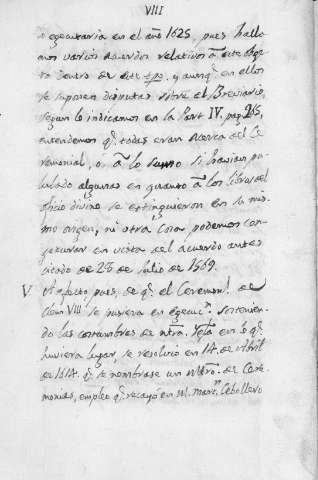 VIII
egecutaria en el año 1625, pues halla
mos varios acuerdos relativos â este obge
to dentro de este tpo. y aunq.e en ellos
se suponen disputas sobre el Breviario,
segun lo indicamos en la Part IV. pag. 265,
entendemos q.e todas eran acerca del Ce
remonial, ò â lo sumo si havian pu
lulado algunas en quanto â los libros del
oficio divino se extinguieron en su mis
mo origen, ni otra cosa podemos con
geturar en vista del acuerdo antes
citado de 23 de Julio de 1569.
V A efecto, pues, de q.e el Ceremon.l de
Clem VIII se pusiera en egecuc.n sostenien
do las costumbres de ntra. Ygla en lo q.e
huviera lugar, se resolvió en 14 de Abril
de 1614 q.e se nombrase un Mtro. de Cere
monias, empleo q.e recayó en M. Mart.n Cebollero